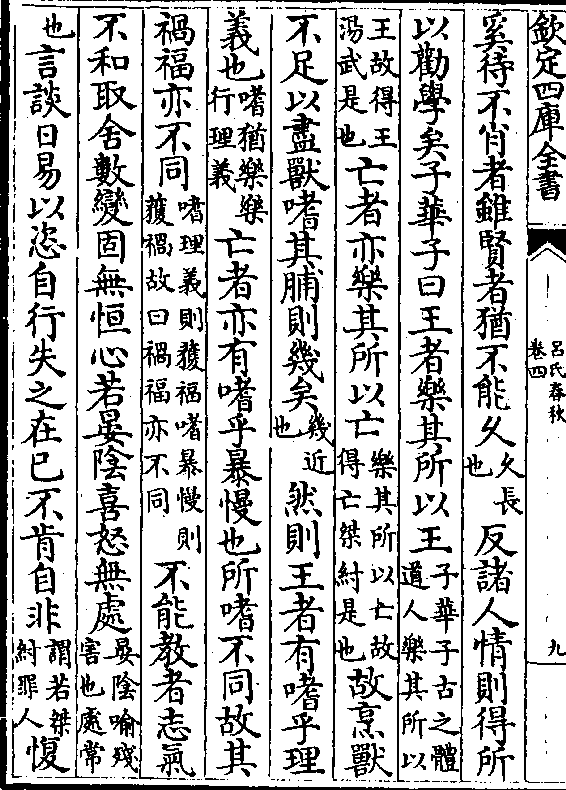 欽定四庫全書
呂氏春秋
卷四
九
奚待不肖者雖賢者猶不能久久長也反諸人情則得所
以勸學矣子華子曰王者樂其所以王子華子古之體道人樂其所以
王故得王湯武是也亡者亦樂其所以亡樂其所以亡故得亡桀紂是也故烹獸
不足以盡獸嗜其脯則幾矣幾近也然則王者有嗜乎理
義也嗜猶樂樂行理義亡者亦有嗜乎暴慢也所嗜不同故其
禍福亦不同嗜理義則獲福嗜暴慢則獲禍故曰禍福亦不同不能教者志氣
不和取舍數變固無恒心若晏陰喜怒無處晏陰喻殘害也處常
也言談日易以恣自行失之在已不肯自非謂若桀紂罪人愎